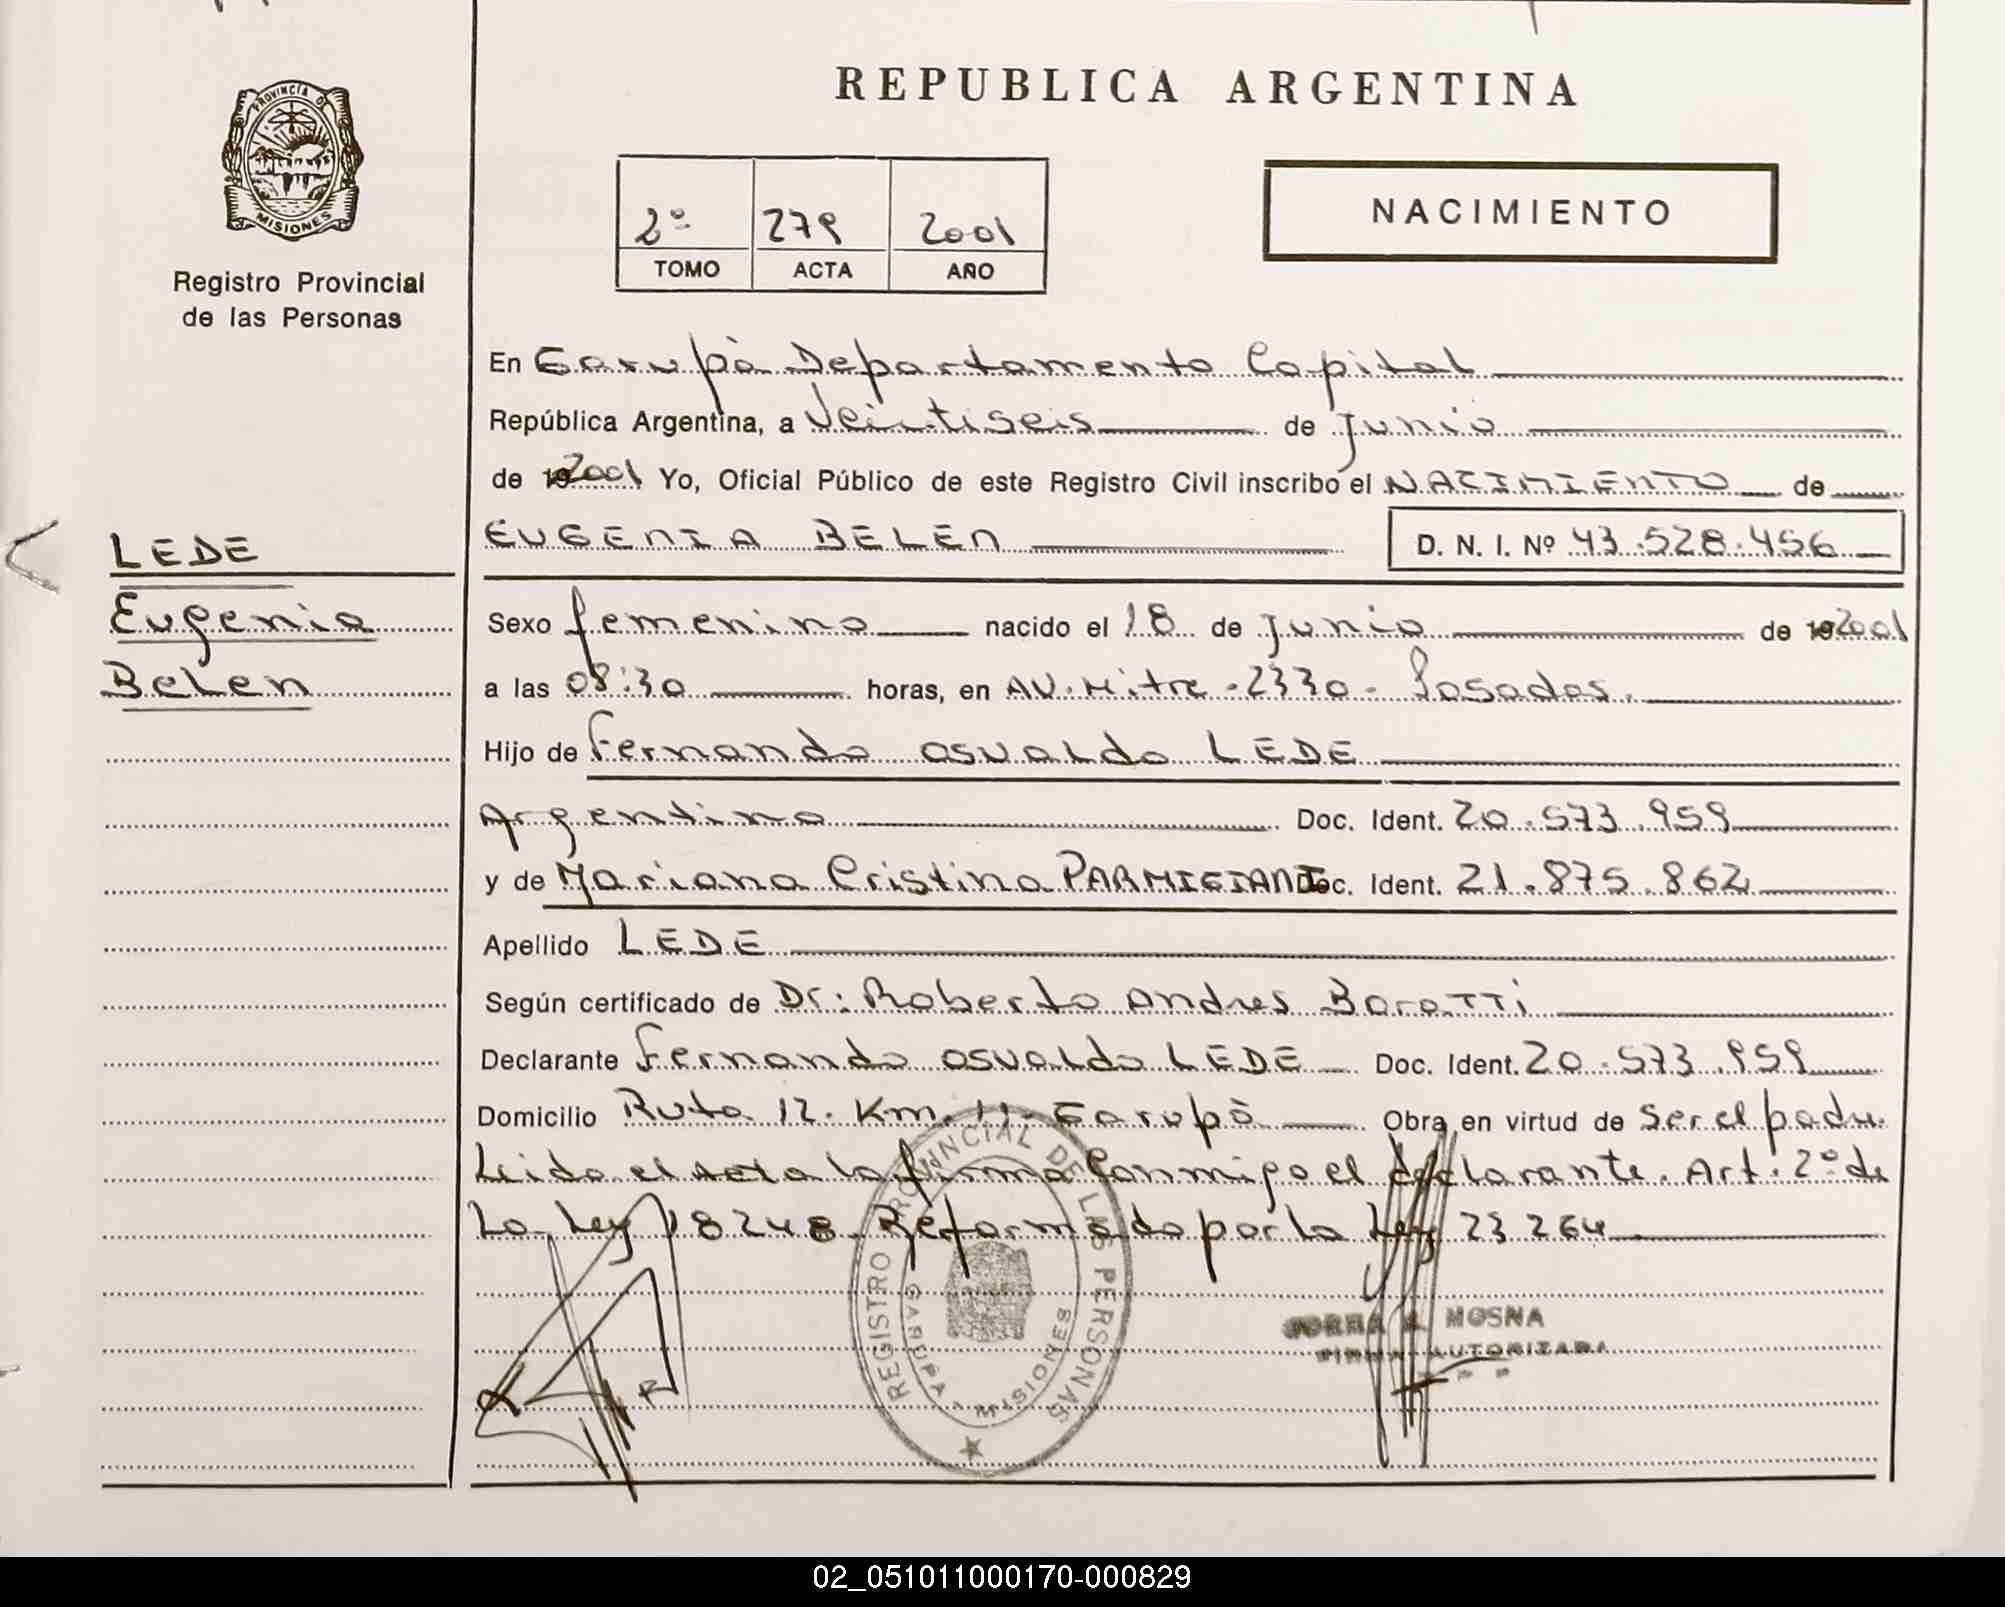 REPUBLICA ARGENTINA
PROVINCIA DE
MISIONES
Registro Provincial
de las Personas
2º 279 2001
TOMO ACTA AÑO
NACIMIENTO
En Garupà Departamento Capital
República Argentina, a Veintiseis de Junio
de 192001 Yo, Oficial Público de este Registro Civil inscribo el NACIMIENTO de
LEDE
EUGENIA BELEN D. N. I. Nº 43.528.456
Eugenia
Sexo femenino nacido el 18 de Junio de 192001
Belen
a las 08:30 horas, en AV. Mitre - 2330 - Posadas.
Hijo de Fernando Osvaldo LEDE
Argentino Doc. Ident. 20.573.959
y de Mariana Cristina PARMIGIANI Doc. Ident. 21.875.862
Apellido LEDE
Según certificado de Dr: Roberto Andres
Declarante Fernando Osvaldo LEDE Doc. Ident. 20.573.959
Domicilio Ruta 12. Km. 11. Garupà Obra en virtud de Ser el padre
Leido el Acta la firma Conmigo el declarante. Art. 2º de
La Ley 18248 Reformado por la Ley 23264
REGISTRO PROVINCIAL DE LAS PERSONAS
GARUPA - MISIONES
MOSNA
FIRMA AUTORIZADA
02_051011000170-000829